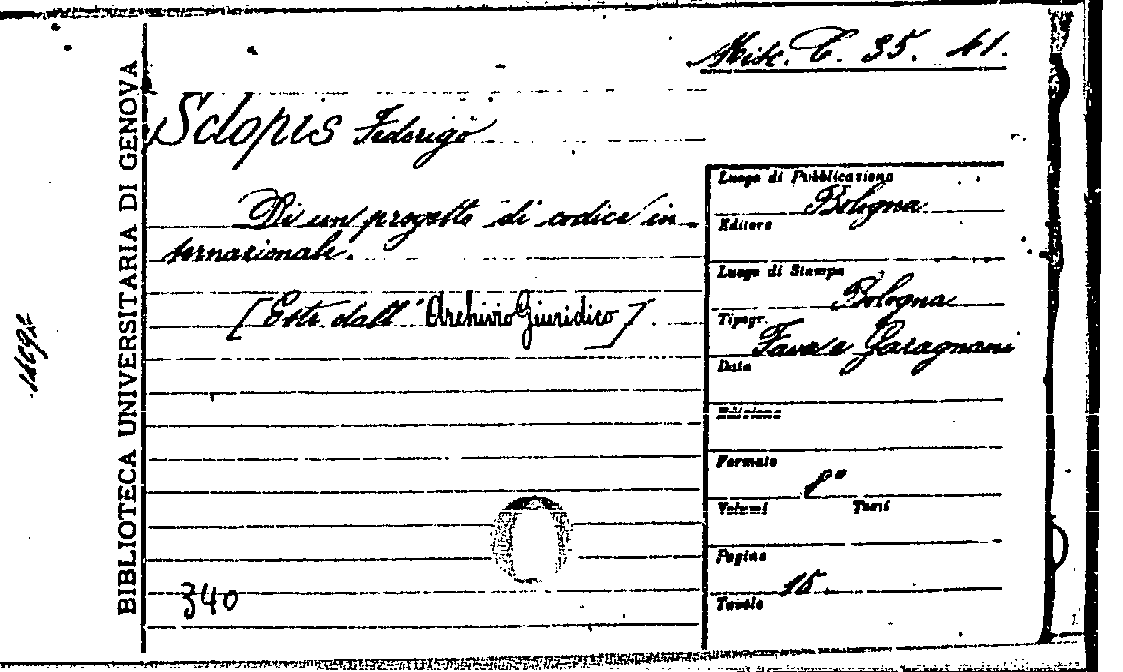 Misc. C. 35. 41.
BIBLIOTECA UNIVERSITARIA DI GENOVA
Sclopis Federigo
Di un progetto di codice in
ternazionale.
[Estr. dall' "Archivio Giuridico]
340
Luogo di Pubblicazione
Bologna
Editore
Luogo di Stampa
Bologna
Tipogr.
Fava e Garagnani
Data
Edizione
Formato
8°
Volumi Tomi
Pagine
15.
Tavole